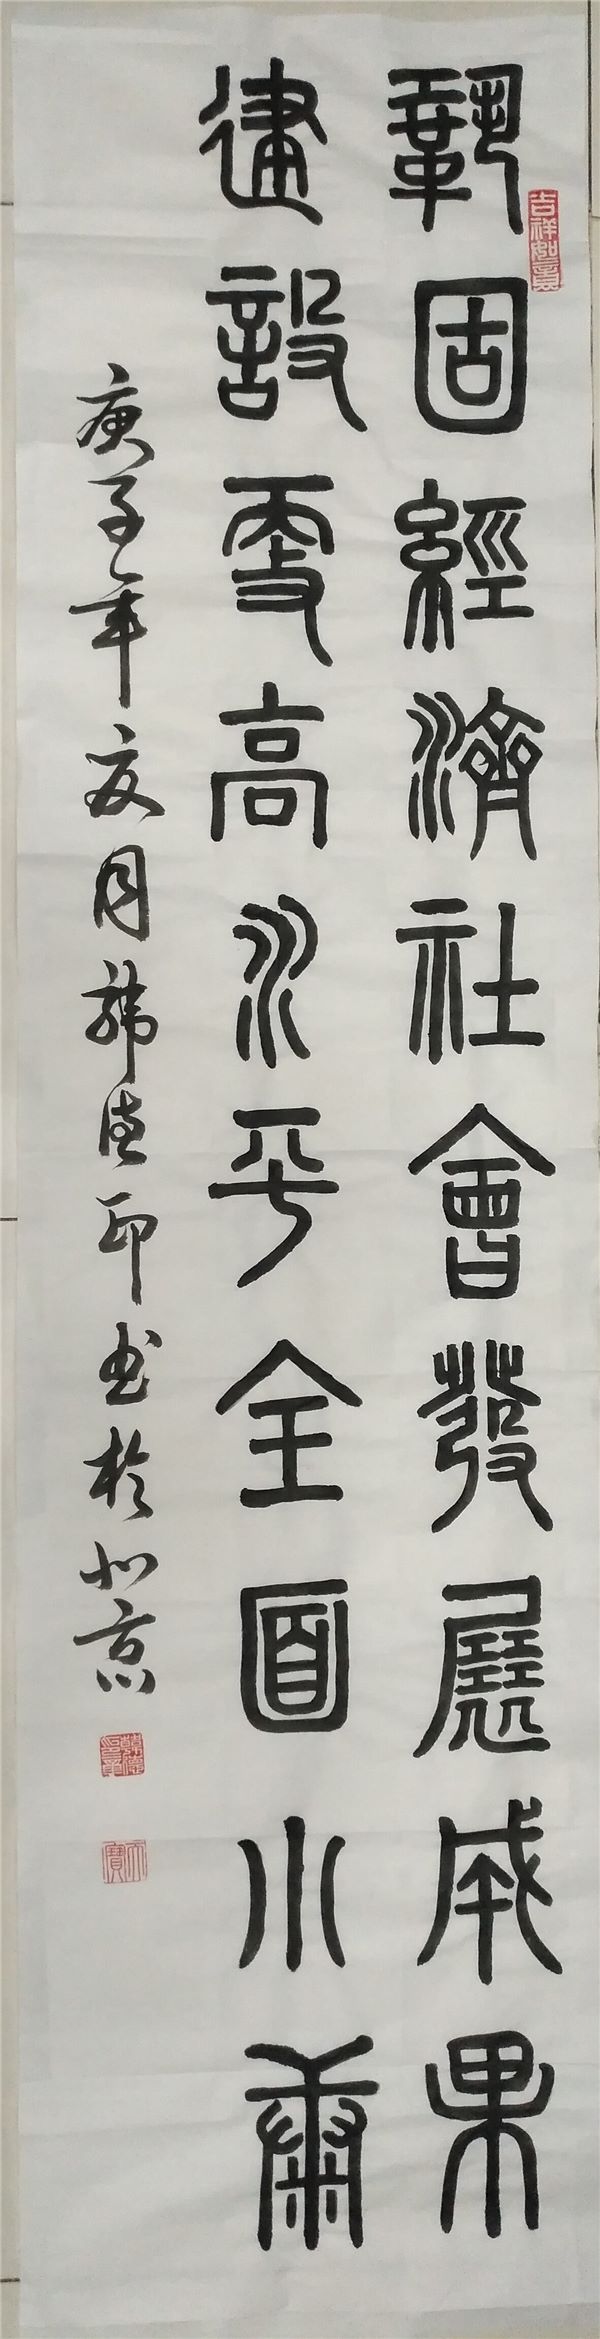 鞏固經濟社會發展成果
建設更高水平全面小康
庚子年夏月韩德印书於北京
吉祥如意